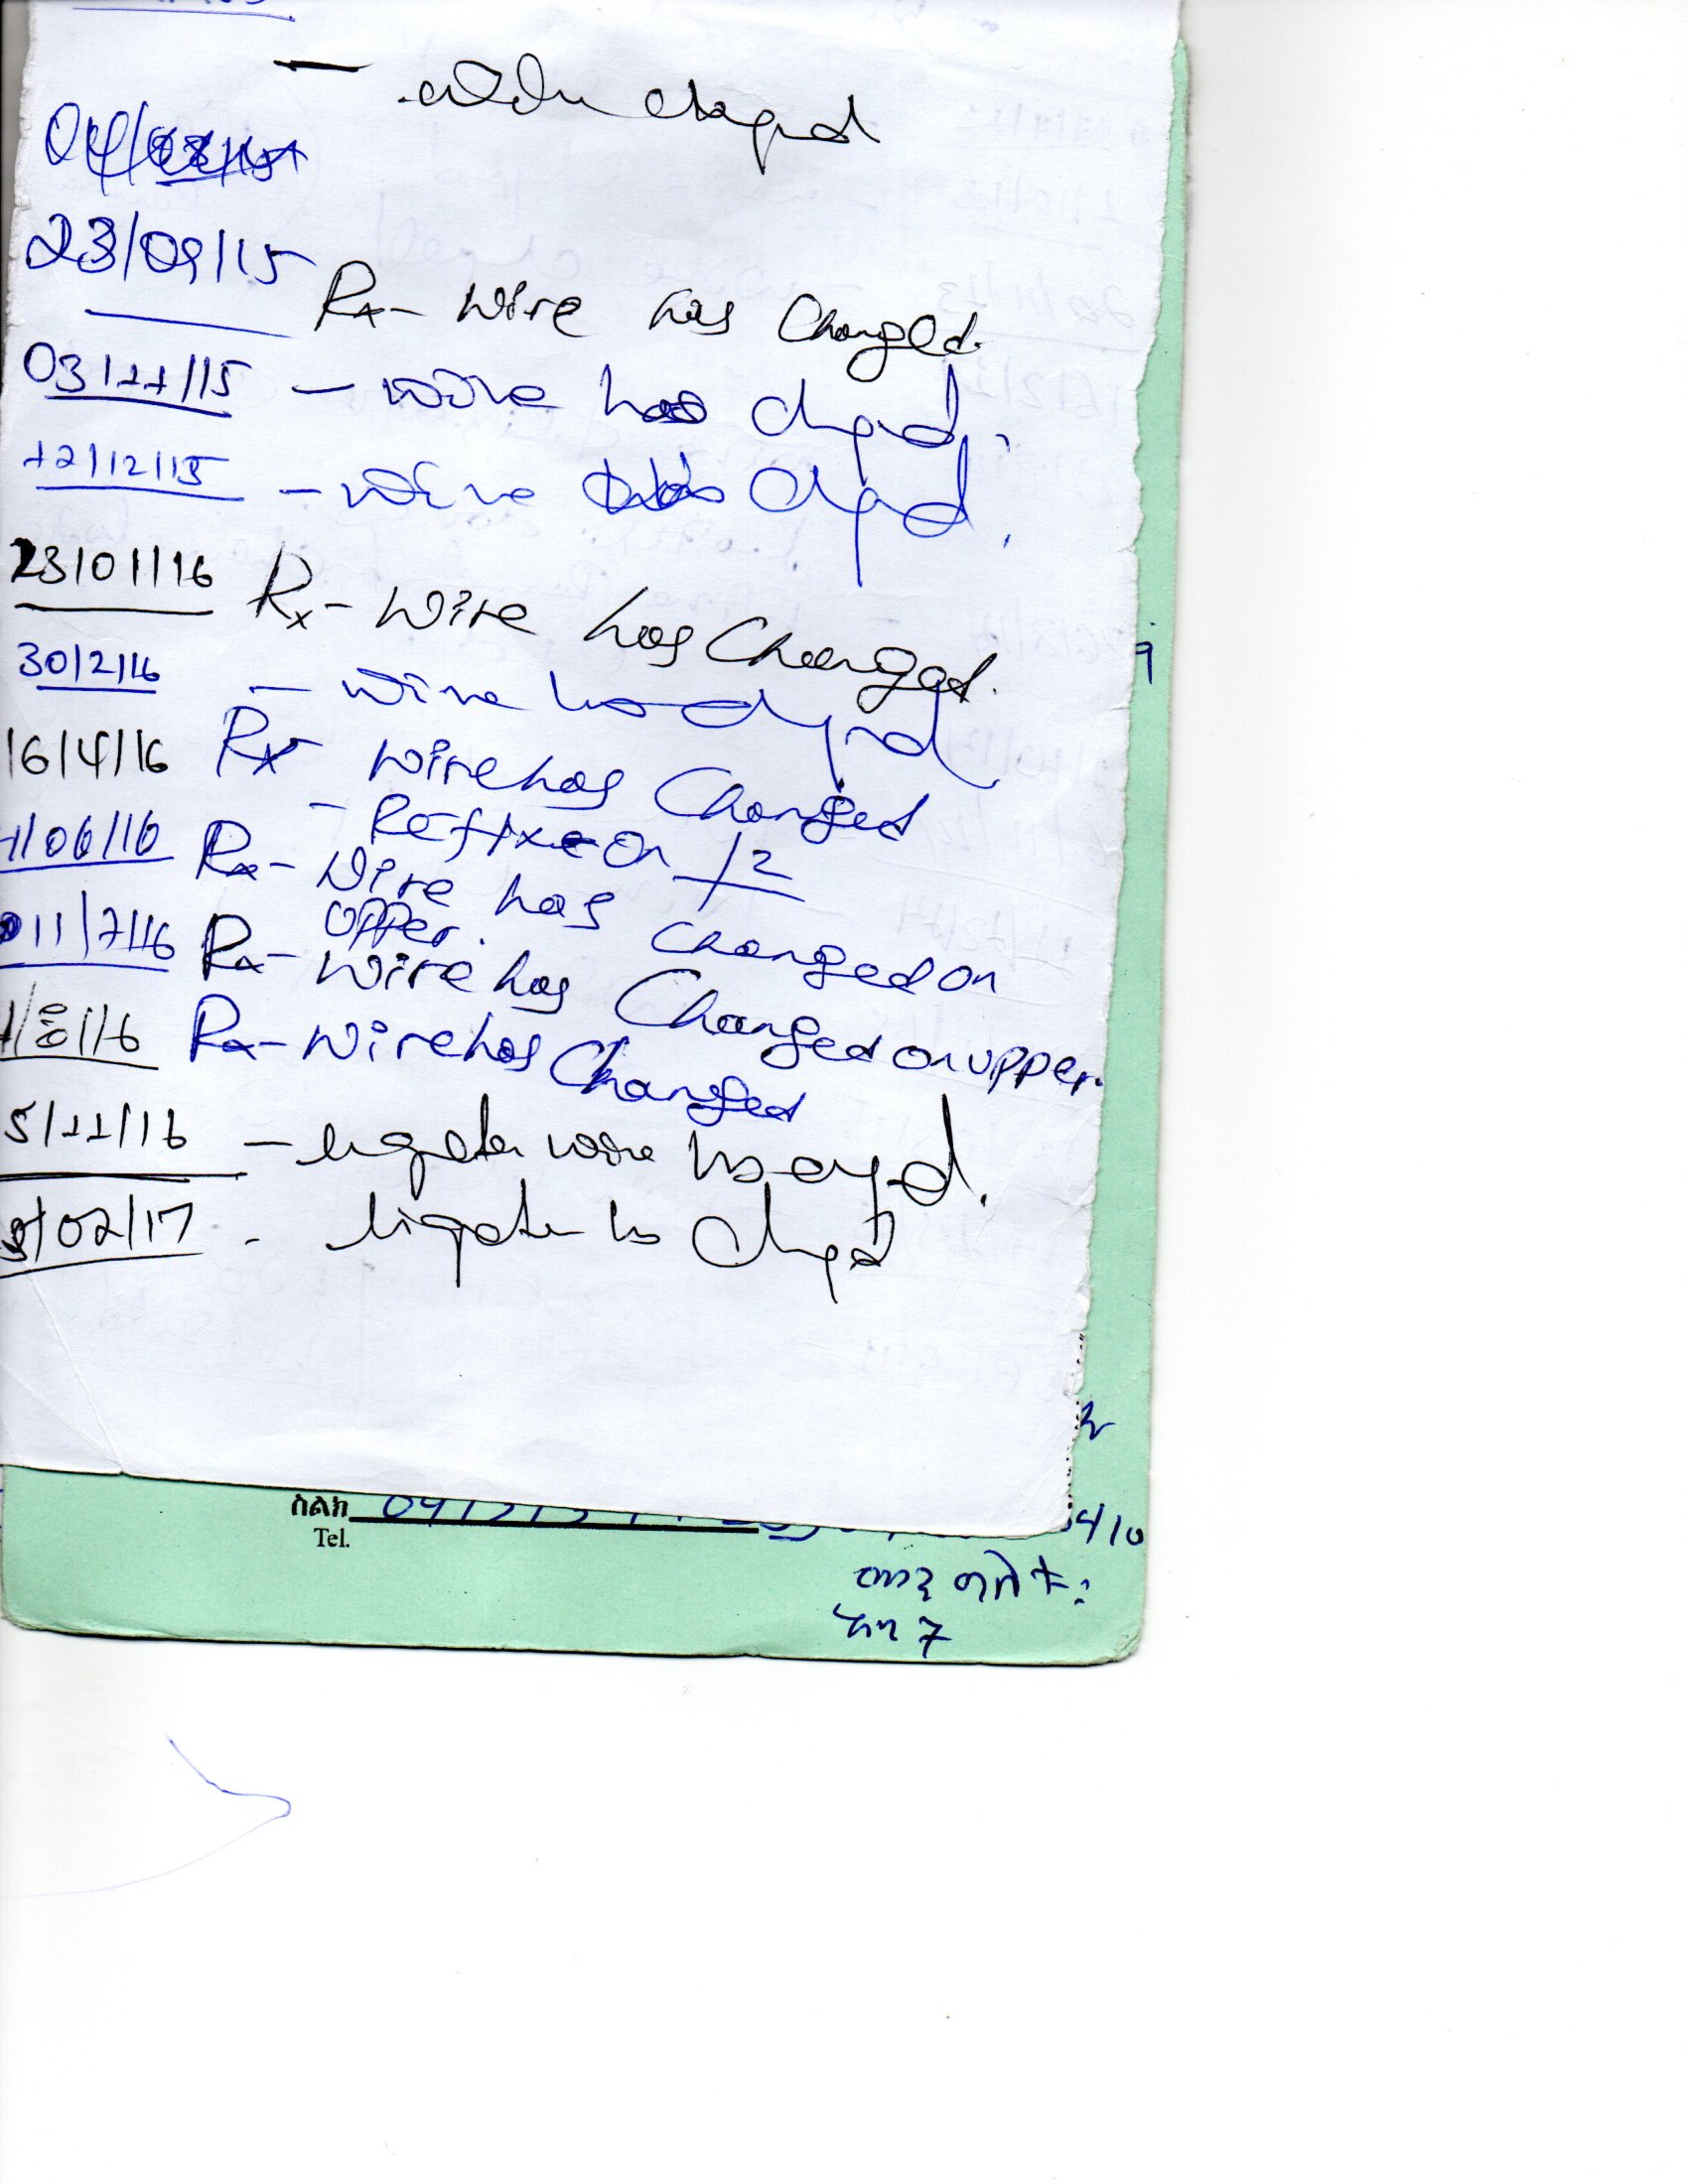 changed
23/09/15
Rx- Wire has Changed.
03/11/15 - wire has changed.
12/12/15 - wire has changed.
23/01/16 Rx- Wire has Changed.
30/2/16 - wire has changed
16/4/16 Rx Wire has Changed
- Refixe on /2
1/06/16 Rx- Wire has changed on
upper.
11/7/16 Rx- Wire has Changed on upper.
1/8/16 Rx- Wire has Changed
5/11/16 - ligater wire has changed.
/02/17 - ligater has changed
ስልክ
Tel.
04/10
7